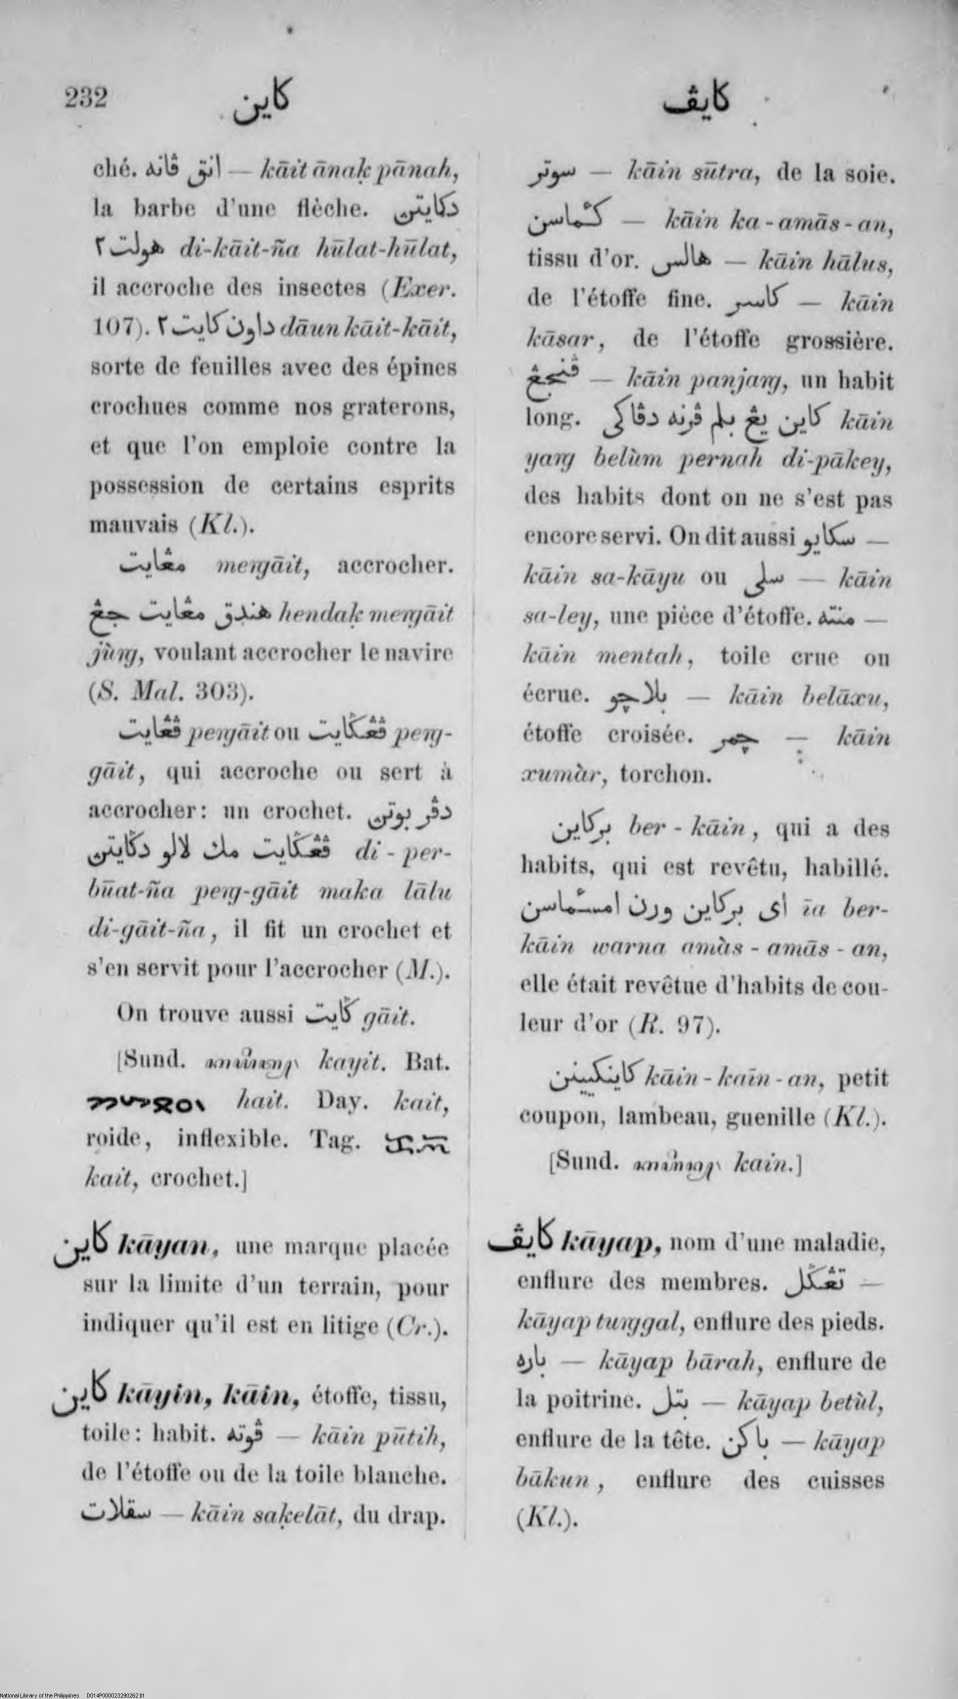 232
كاين
كايڤ
ché. انق ڤانه — kāit ānaḳ pānah,
la barbe d'une flèche. دكايتن
هولت٢ di-kāit-ña hūlat-hūlat,
il accroche des insectes (Exer.
107). داون كايت٢ dāun kāit-kāit,
sorte de feuilles avec des épines
crochues comme nos graterons,
et que l'on emploie contre la
possession de certains esprits
mauvais (Kl.).
مڠايت meṅgāit, accrocher.
هندق مڠايت جڠ hendaḳ meṅgāit
jùṅg, voulant accrocher le navire
(S. Mal. 303).
ڤڠايت peṅgāit ou ڤڠݢايت peṅg-
gāit, qui accroche ou sert à
accrocher: un crochet. دڤربوتن
ڤڠݢايت مك لالو دݢايتن di-per-
būat-ña peṅg-gāit maka lālu
di-gāit-ña, il fit un crochet et
s'en servit pour l'accrocher (M.).
On trouve aussi ݢايت gāit.
[Sund. kayit. Bat.
hait. Day. kait,
roide, inflexible. Tag.
kait, crochet.]
كاين kāyan, une marque placée
sur la limite d'un terrain, pour
indiquer qu'il est en litige (Cr.).
كاين kāyin, kāin, étoffe, tissu,
toile: habit. ڤوته — kāin pūtih,
de l'étoffe ou de la toile blanche.
سقلات — kāin saḳelāt, du drap.
سوتر — kāin sūtra, de la soie.
— kāin ka-amās-an,
tissu d'or. هالس — kāin hālus,
de l'étoffe fine. كاسر — kāin
kāsar, de l'étoffe grossière.
ڤنجڠ — kāin panjaṅg, un habit
long. كاين يڠ بلم ڤرنه دڤاكى kāin
yaṅg belùm pernah di-pākey,
des habits dont on ne s'est pas
encore servi. On dit aussi سكايو —
kāin sa-kāyu ou سلى — kāin
sa-ley, une pièce d'étoffe. منته —
kāin mentah, toile crue ou
écrue. بلاچو — kāin belāxu,
étoffe croisée. چمر — kāin
xumàr, torchon.
بركاين ber-kāin, qui a des
habits, qui est revêtu, habillé.
اى بركاين ورن īa ber-
kāin warna amàs-amās-an,
elle était revêtue d'habits de cou-
leur d'or (R. 97).
kāin-kaīn-an, petit
coupon, lambeau, guenille (Kl.).
[Sund. kain.]
كايڤ kāyap, nom d'une maladie,
enflure des membres. تڠݢل —
kāyap tuṅggal, enflure des pieds.
باره — kāyap bārah, enflure de
la poitrine. بتل — kāyap betùl,
enflure de la tête. باكن — kāyap
bākun, enflure des cuisses
(Kl.).
National Library of the Philippines